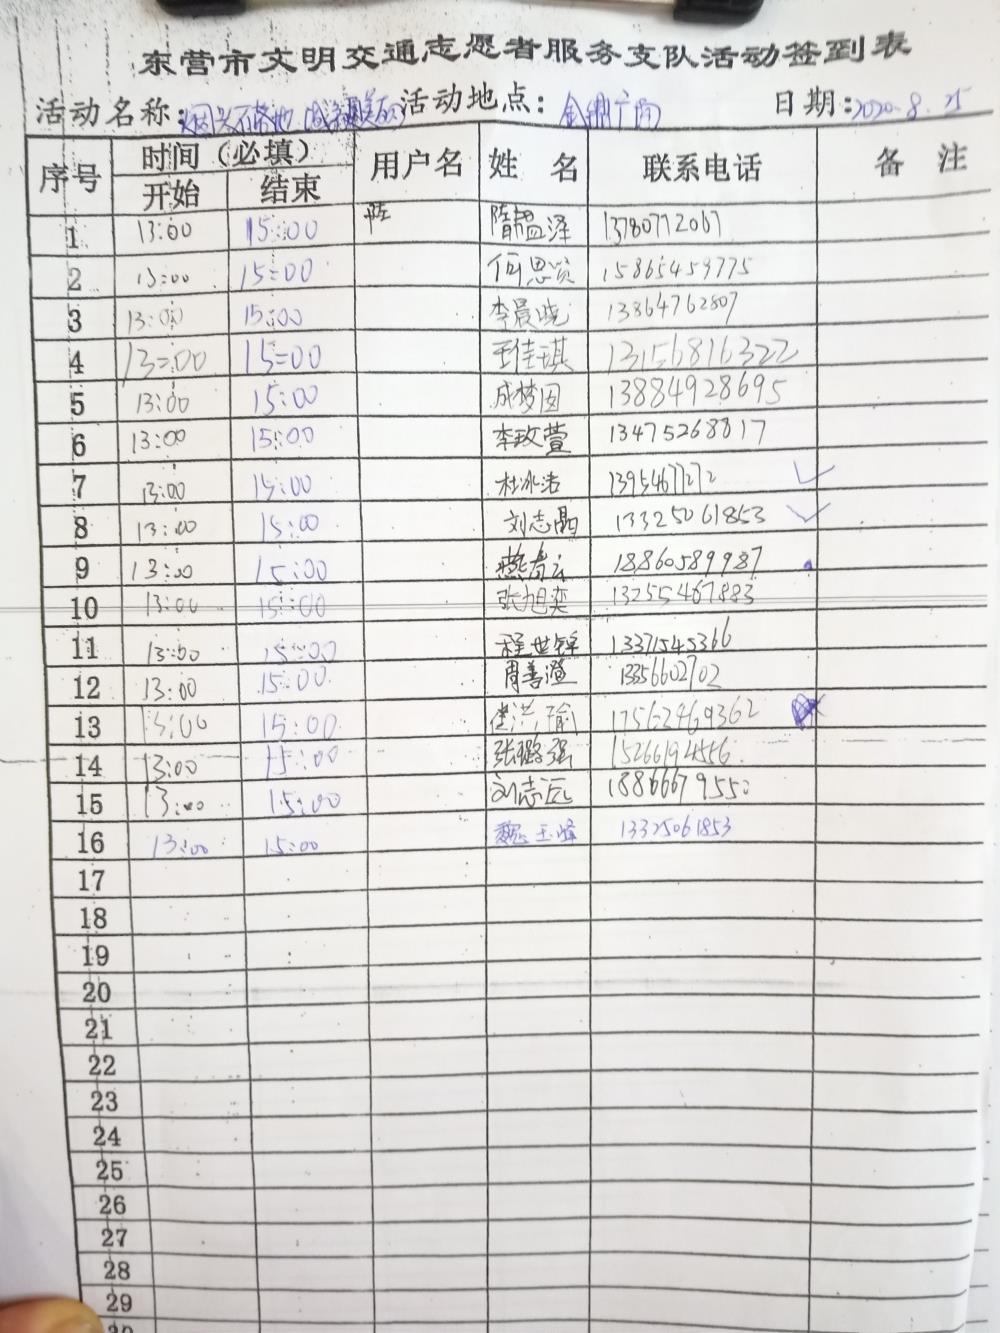 东营市文明交通志愿者服务支队活动签到表
活动名称: 烟头不落地 城 更美 活动地点: 金 广 日期: 2020.8.25
序号 时间（必填） 用户名 姓名 联系电话 备注
开始 结束
1 13:00 15:00 隋 泽 13780772067
2 13:00 15:00 何思 15865459775
3 13:00 15:00 李晨晓 13864762807
4 13:00 15:00 王佳琪 13156816322
5 13:00 15:00 成梦圆 13884928695
6 13:00 15:00 李玫萱 13475268817
7 13:00 15:00 杜冰洁 13954677272
8 13:00 15:00 刘志 13325061853
9 13:00 15:00 燕 18860589987
10 13:00 15:00 张旭奕 13255467883
11 13:00 15:00 程世锦 13371545366
12 13:00 15:00 周善 13356602702
13 13:00 15:00 洪瑜 17562469362
14 13:00 15:00 张璐强 15266194556
15 13:00 15:00 刘志远 18866679550
16 13:00 15:00 魏玉峰 13325061853
17
18
19
20
21
22
23
24
25
26
27
28
29
30